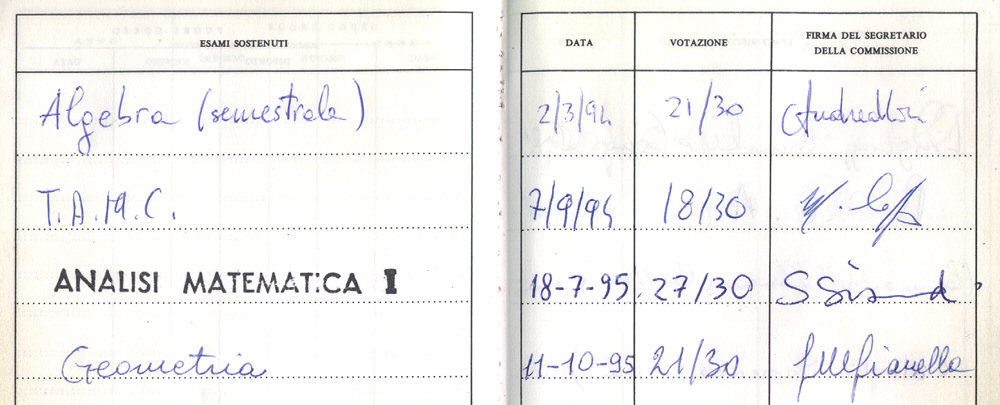 ESAMI SOSTENUTI DATA VOTAZIONE FIRMA DEL SEGRETARIO DELLA COMMISSIONE
Algebra (semestrale) 2/3/94 21/30
T.A.M.C. 7/9/94 18/30
ANALISI MATEMATICA I 18-7-95 27/30
Geometria 11-10-95 21/30